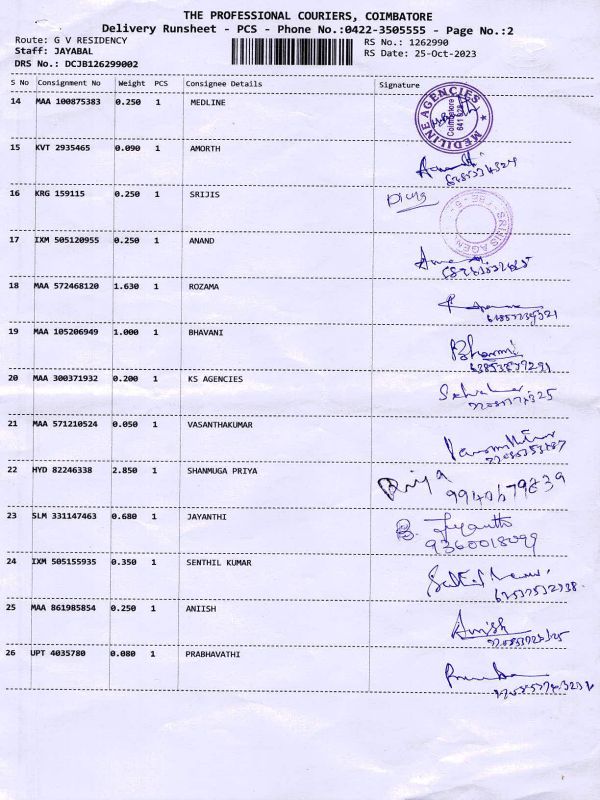 THE PROFESSIONAL COURIERS, COIMBATORE
Delivery Runsheet - PCS - Phone No.:0422-3505555 - Page No.:2
Route: G V RESIDENCY
Staff: JAYABAL
DRS No.: DCJB126299002
RS No.: 1262990
RS Date: 25-Oct-2023
S No Consignment No Weight PCS Consignee Details Signature
14 MAA 100875383 0.250 1 MEDLINE
MEDILINE AGENCIES
Coimbatore
641 028
15 KVT 2935465 0.090 1 AMORTH
16 KRG 159115 0.250 1 SRIJIS
SRIJIS AGEN
17 IXM 505120955 0.250 1 ANAND
18 MAA 572468120 1.630 1 ROZAMA
19 MAA 105206949 1.000 1 BHAVANI
20 MAA 300371932 0.200 1 KS AGENCIES
21 MAA 571210524 0.050 1 VASANTHAKUMAR
22 HYD 82246338 2.850 1 SHANMUGA PRIYA
Priya
23 SLM 331147463 0.680 1 JAYANTHI
9360018099
24 IXM 505155935 0.350 1 SENTHIL KUMAR
25 MAA 861985854 0.250 1 ANIISH
Anish
26 UPT 4035780 0.080 1 PRABHAVATHI